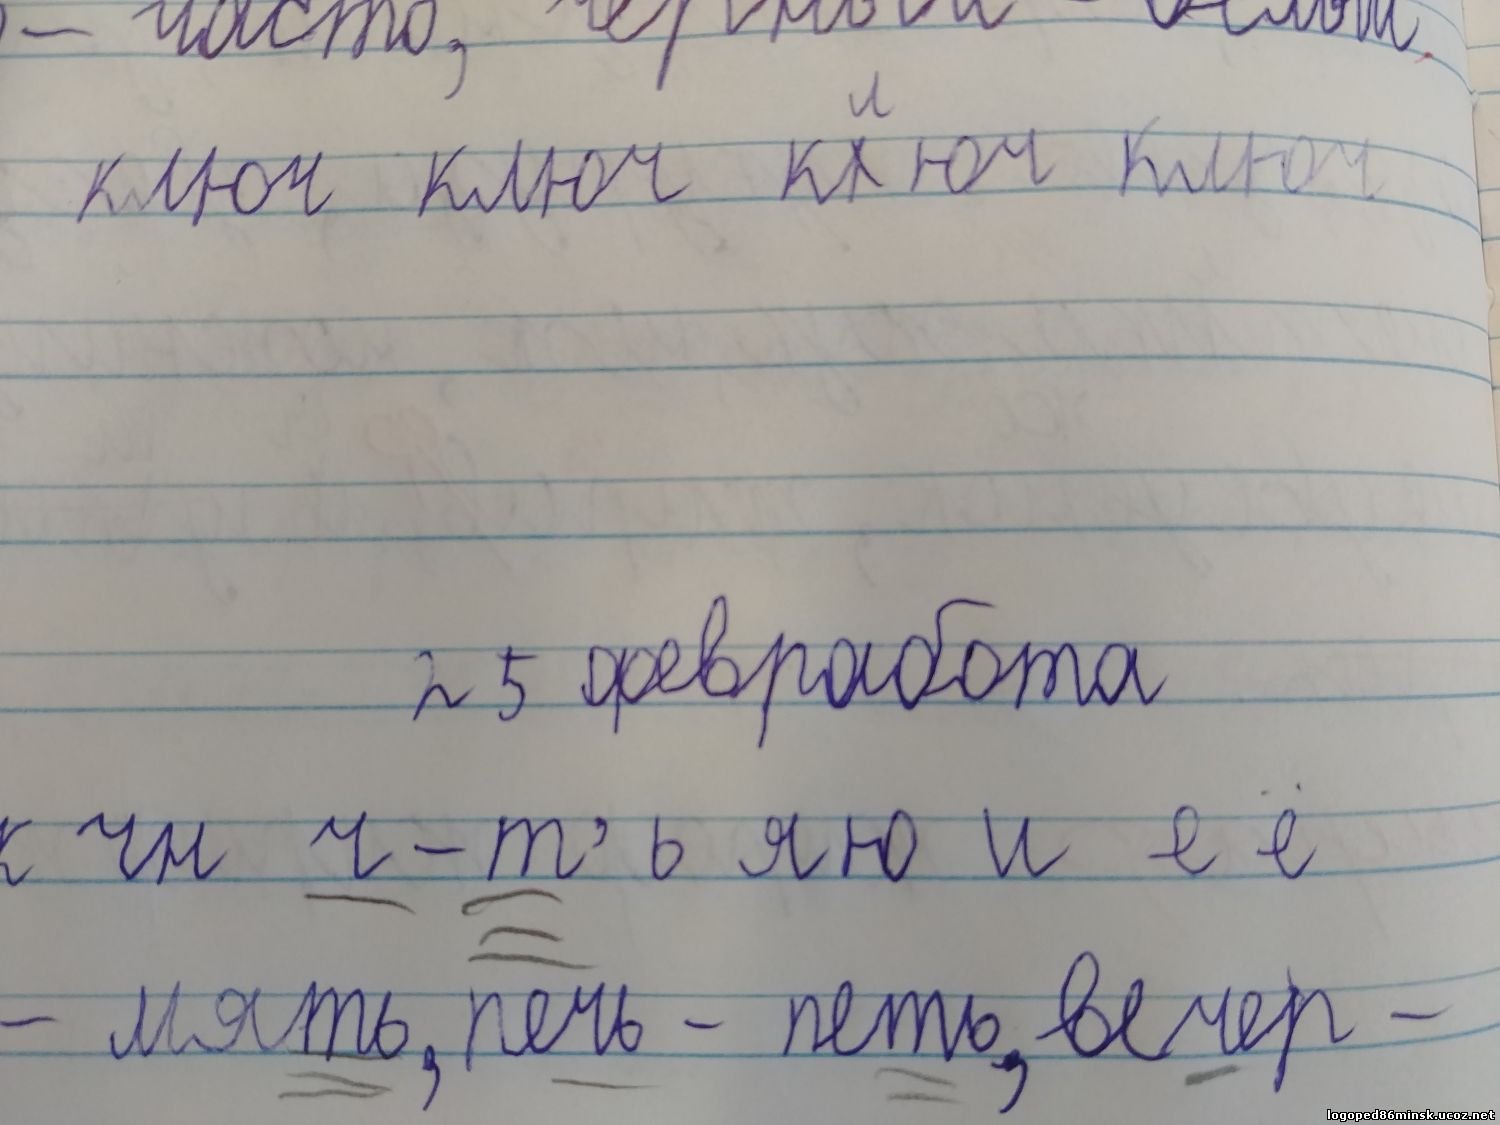 – часто, чёрный – белый.
л
ключ ключ кхюч ключ
25 февработа
к чн ч – т' ь я ю и е ё
– мять, печь – петь, вечер –
logoped86minsk.ucoz.net